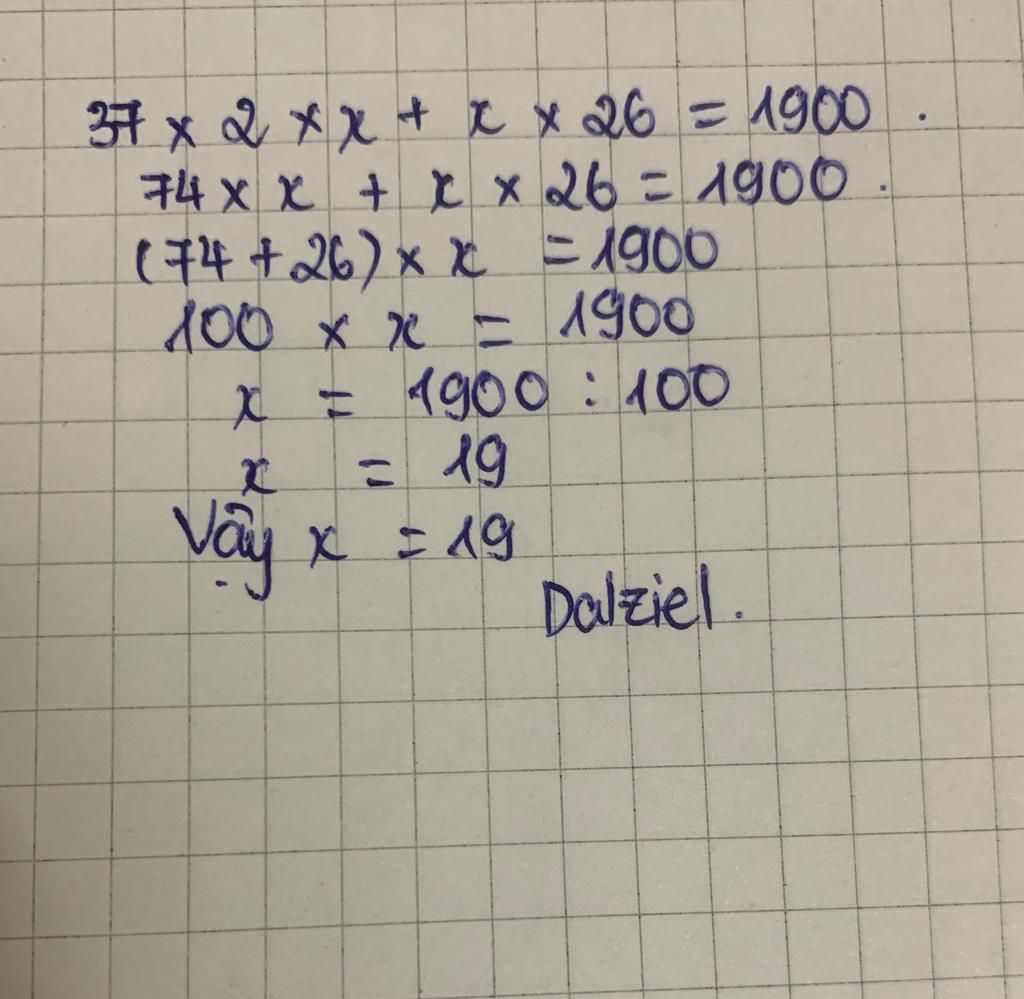 37 × 2 × x + x × 26 = 1900 .
74 × x + x × 26 = 1900 .
(74 + 26) × x = 1900
100 × x = 1900
x = 1900 : 100
x = 19
Vậy x = 19
Dalziel .